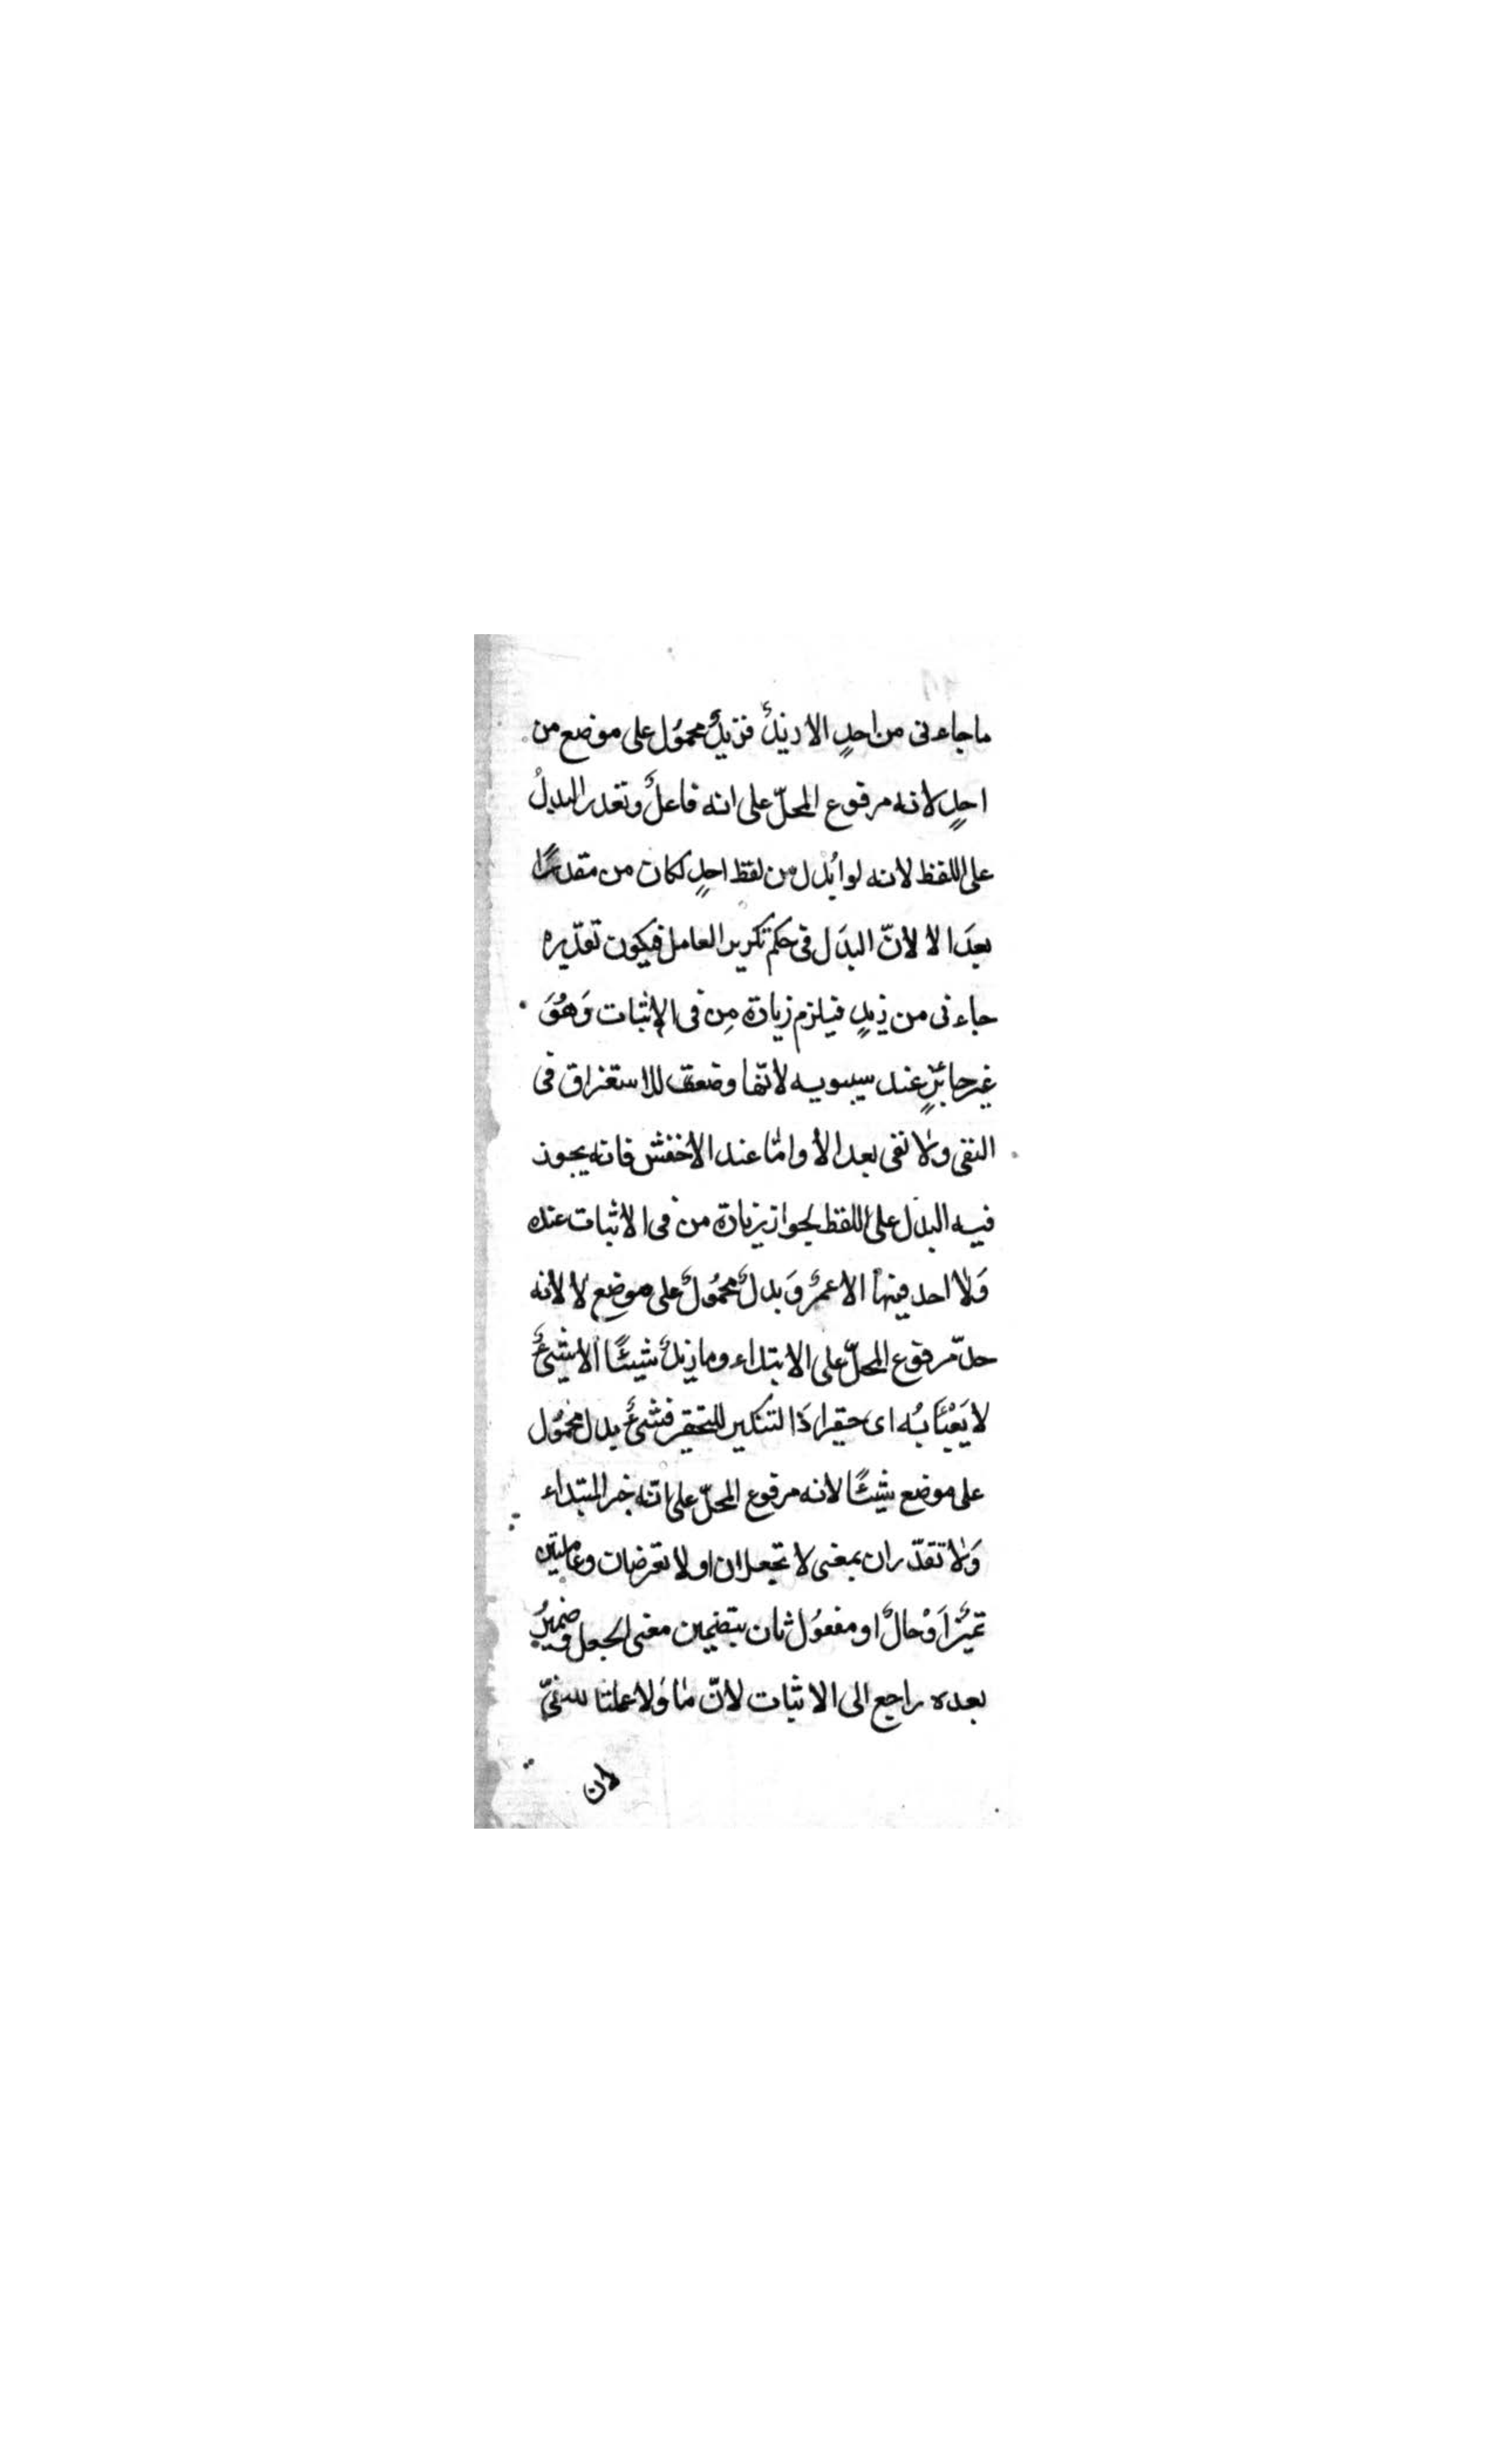 ماجاءنى من احدٍ الا زيدٌ فزيدٌ محمُول على موضع من
احدٍ لانه مرفوع المحلّ على انه فاعلٌ وتعذر البدلُ
على اللفظ لانه لو ابُدل من لفظ احدٍ لكان من مقدرًا
بعدَ الا لانّ البدَل فى حكم تكرير العامل فيكون تقدّيره
جاءنى من زيدٍ فيلزم زيادة مِن فى الإثبات وَهُوَ
غير جائزٍ عند سيبويه لانّها وضعت للاستغراق فى
النفى ولا نفى بعد الا وامّا عند الاخفش فانه يجوز
فيه البدل على اللفظ لجواز زيادة من فى الاثبات عنده
وَلا احد فيها الا عمرٌو بدلٌ محمُولٌ على موضع لا لانه
حلّ مرفوع المحلّ على الابتداء وما زيدٌ شيئًا الا شيئٌ
لا يَعْبَأبُه اى حقيرا ذا لتنكير للتحقير فشئٌ بدل محمُول
على موضع شيئًا لانه مرفوع المحلّ على انّه خبر المبتداء
وَلا تقدّران بمعنى لا تجعلان او لا تعرضان وعاملتين
تميزٌ اَوْحالٌ او مفعوُل ثان بتضمين معنى الجعل فى ضميرُ
بعده راجع الى الاثبات لانّ ما وَلا عملتا للنفىّ
لان